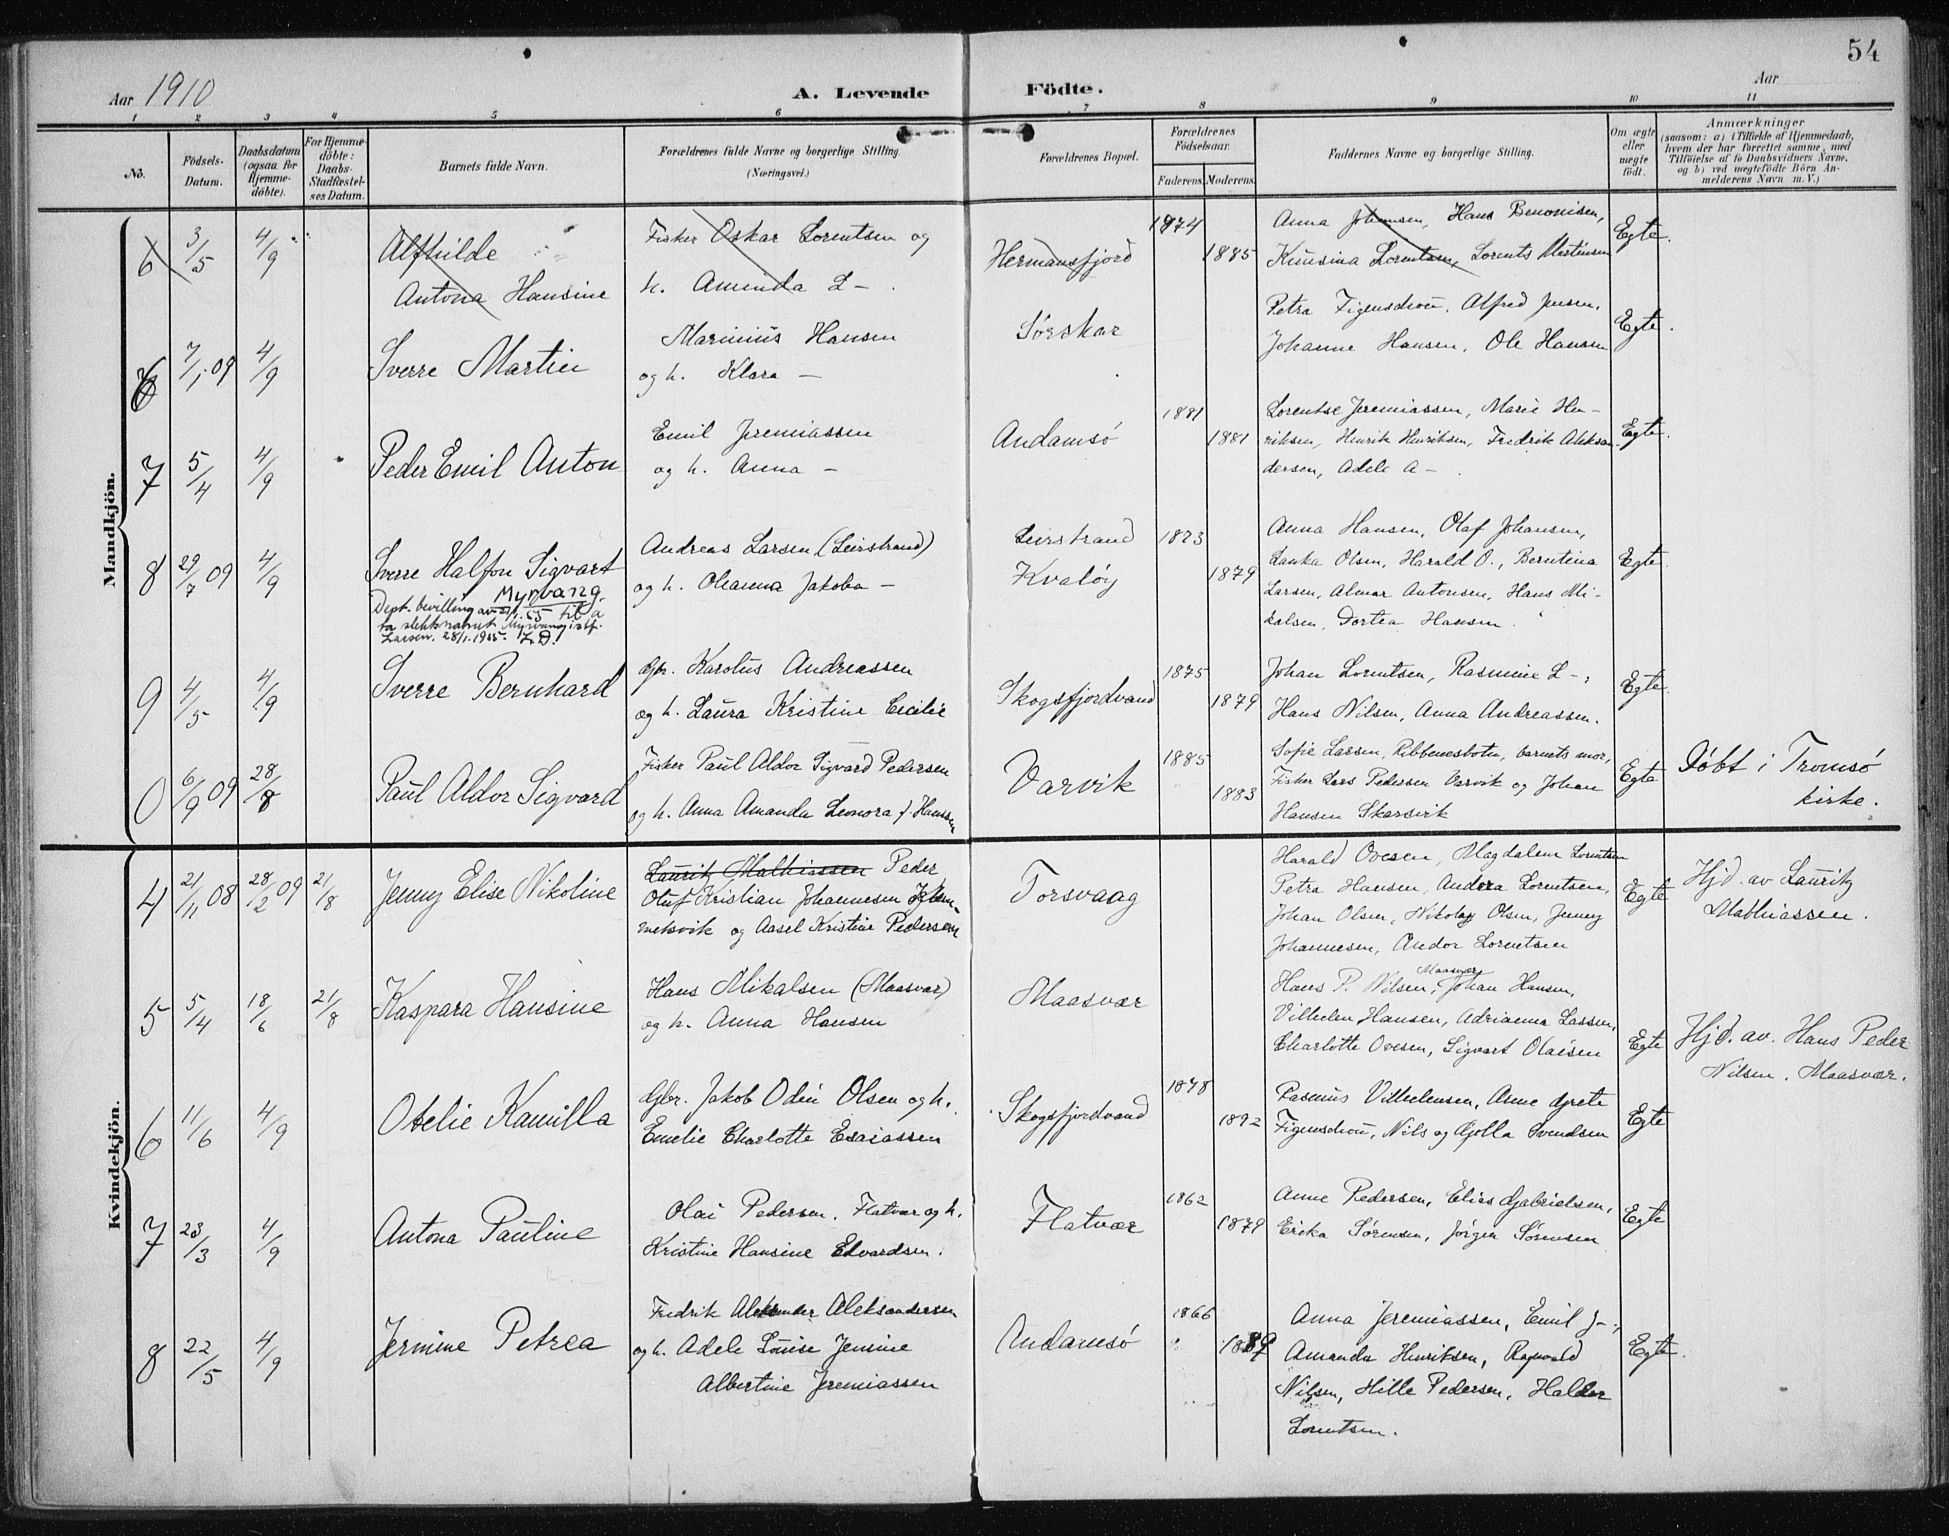 54
Aar 1910
A. Levende Födte.
Aar
1 2 3 4 5 6 7 8 9 10 11
No.
Födsels-Datum.
Daabsdatum (ogsaa for Hjemmedöbte).
For Hjemmedöbte: Daabs-Stadfæstelses Datum.
Barnets fulde Navn.
Forældrenes fulde Navne og borgerlige Stilling. (Næringsvei.)
Forældrenes Bopæl.
Forældrenes Födselsaar.
Faderens. Moderens.
Faddernes Navne og borgerlige Stilling.
Om ægte eller uægte födt.
Anmærkninger
(saasom: a) i Tilfælde af Hjemmedaab, hvem der har forrettet samme, med Tilföielse af to Daabsvidners Navne, og b) ved uægtefödte Börn Anmelderens Navn m. V.)
Mandkjön.
6 3/5 4/9 Alfhilde Antona Hansine
Fisker Oskar Lorentsen og
h. Aminda L-
Hermansfjord 1874 1885
Anna Johansen, Hans Benonisen,
Kunsina Lorentsen, Lorents Mortensen
Egte.
6 7/1 09 4/9 Sverre Martin
Marinius Hansen
og h. Klara -
Sørskar
Petra Figenschou, Alfred Jensen,
Johanne Hansen, Ole Hansen
Egte.
7 5/4 4/9 Peder Emil Anton
Emil Jeremiassen
og h. Anna -
Andamsø 1881 1881
Lorentse Jeremiassen, Marie Hen-
riksen, Henrik Henriksen, Fredrik Aleksan-
dersen, Adele A-
Egte.
8 29/7 09 4/9 Sverre Halfon Sigvart
Myrvang.
Dept. bevilling av 21/1.55 til å
ta slektsnamnet Myrvang istf.
Larsen. 28/1.1955. L.D.
Andreas Larsen (Leirstrand)
og h. Oleanna Jakoba -
Leirstrand
Kvaløy
1873 1879
Anna Hansen, Olaf Johansen,
Lanka Olsen, Harald O., Berntina
Larsen, Almar Antonsen, Hans Mi-
kalsen, Dortea Hansen.
Egte.
9 4/5 4/9 Sverre Bernhard
Gbr. Karolus Andreassen
og h. Laura Kristine Cecilie
Skogsfjordvand 1875 1879
Johan Lorentsen, Rasmine L-,
Hans Nilsen, Anna Andreassen.
Egte.
0 6/9 09 28/8 Paul Aldor Sigvard
Fisker Paul Aldor Sigvard Pedersen
og h. Anna Amanda Leonora f. Hanssen
Varvik 1885 1883
Sofie Larsen, Ribbenesbotn, barnets mor,
Fisker Lars Pedersen Varvik og Johan
Hansen Skarsvik
Egte
Døbt i Tromsø
kirke.
Kvindekjön.
4 21/11 08 28/2 09 21/8 Jenny Elise Nikoline
Lauritz Mathiassen Peder
Oluf Kristian Johannesen
og Aasel Kristine Pedersen
Torsvaag
Harald Ovesen, Magdalene Lorentsen
Petra Hansen, Andrea Lorentsen,
Johan Olsen, Nikolay Olsen, Jenny
Johannesen, Andor Lorentsen
Egte
Hjd. av Lauritz
Mathiassen.
5 5/4 18/6 21/8 Kaspara Hansine
Hans Mikalsen (Maasvær)
og h. Anna Hansen
Maasvær
Maasvær
Hans P. Nilsen, Johan Hansen,
Villielen Hansen, Adrianna Lassen,
Charlotte Ovesen, Sigvart Olaisen
Egte
Hjd. av. Hans Peder
Nilsen. Maasvær.
6 11/6 4/9 Otelie Kamilla
Gbr. Jakob Odin Olsen og h.
Emelie Charlotte Esaiassen
Skogsfjordvand 1878 1892
Rasmus Villielmsen, Anne Grete
Figenschou, Nils og Gjolla Svendsen
Egte
7 23/3 4/9 Antona Pauline
Olai Pedersen. Flatvær og h.
Kristine Hansine Edvardsen.
Flatvær 1862 1879
Anne Pedersen, Elies Gabrielsen,
Ericka Sørensen, Jørger Sørensen
Egte
8 22/5 4/9 Jermine Petrea
Fredrik Aleksander Aleksandersen
og h. Adele Louise Jensine
Albertine Jeremiassen
Andamsø 1866 1889
Anna Jeremiassen, Emil J-,
Amanda Henriksen, Ragnvald
Nilsen, Hille Pedersen, Haldor
Lorentsen.
Egte.